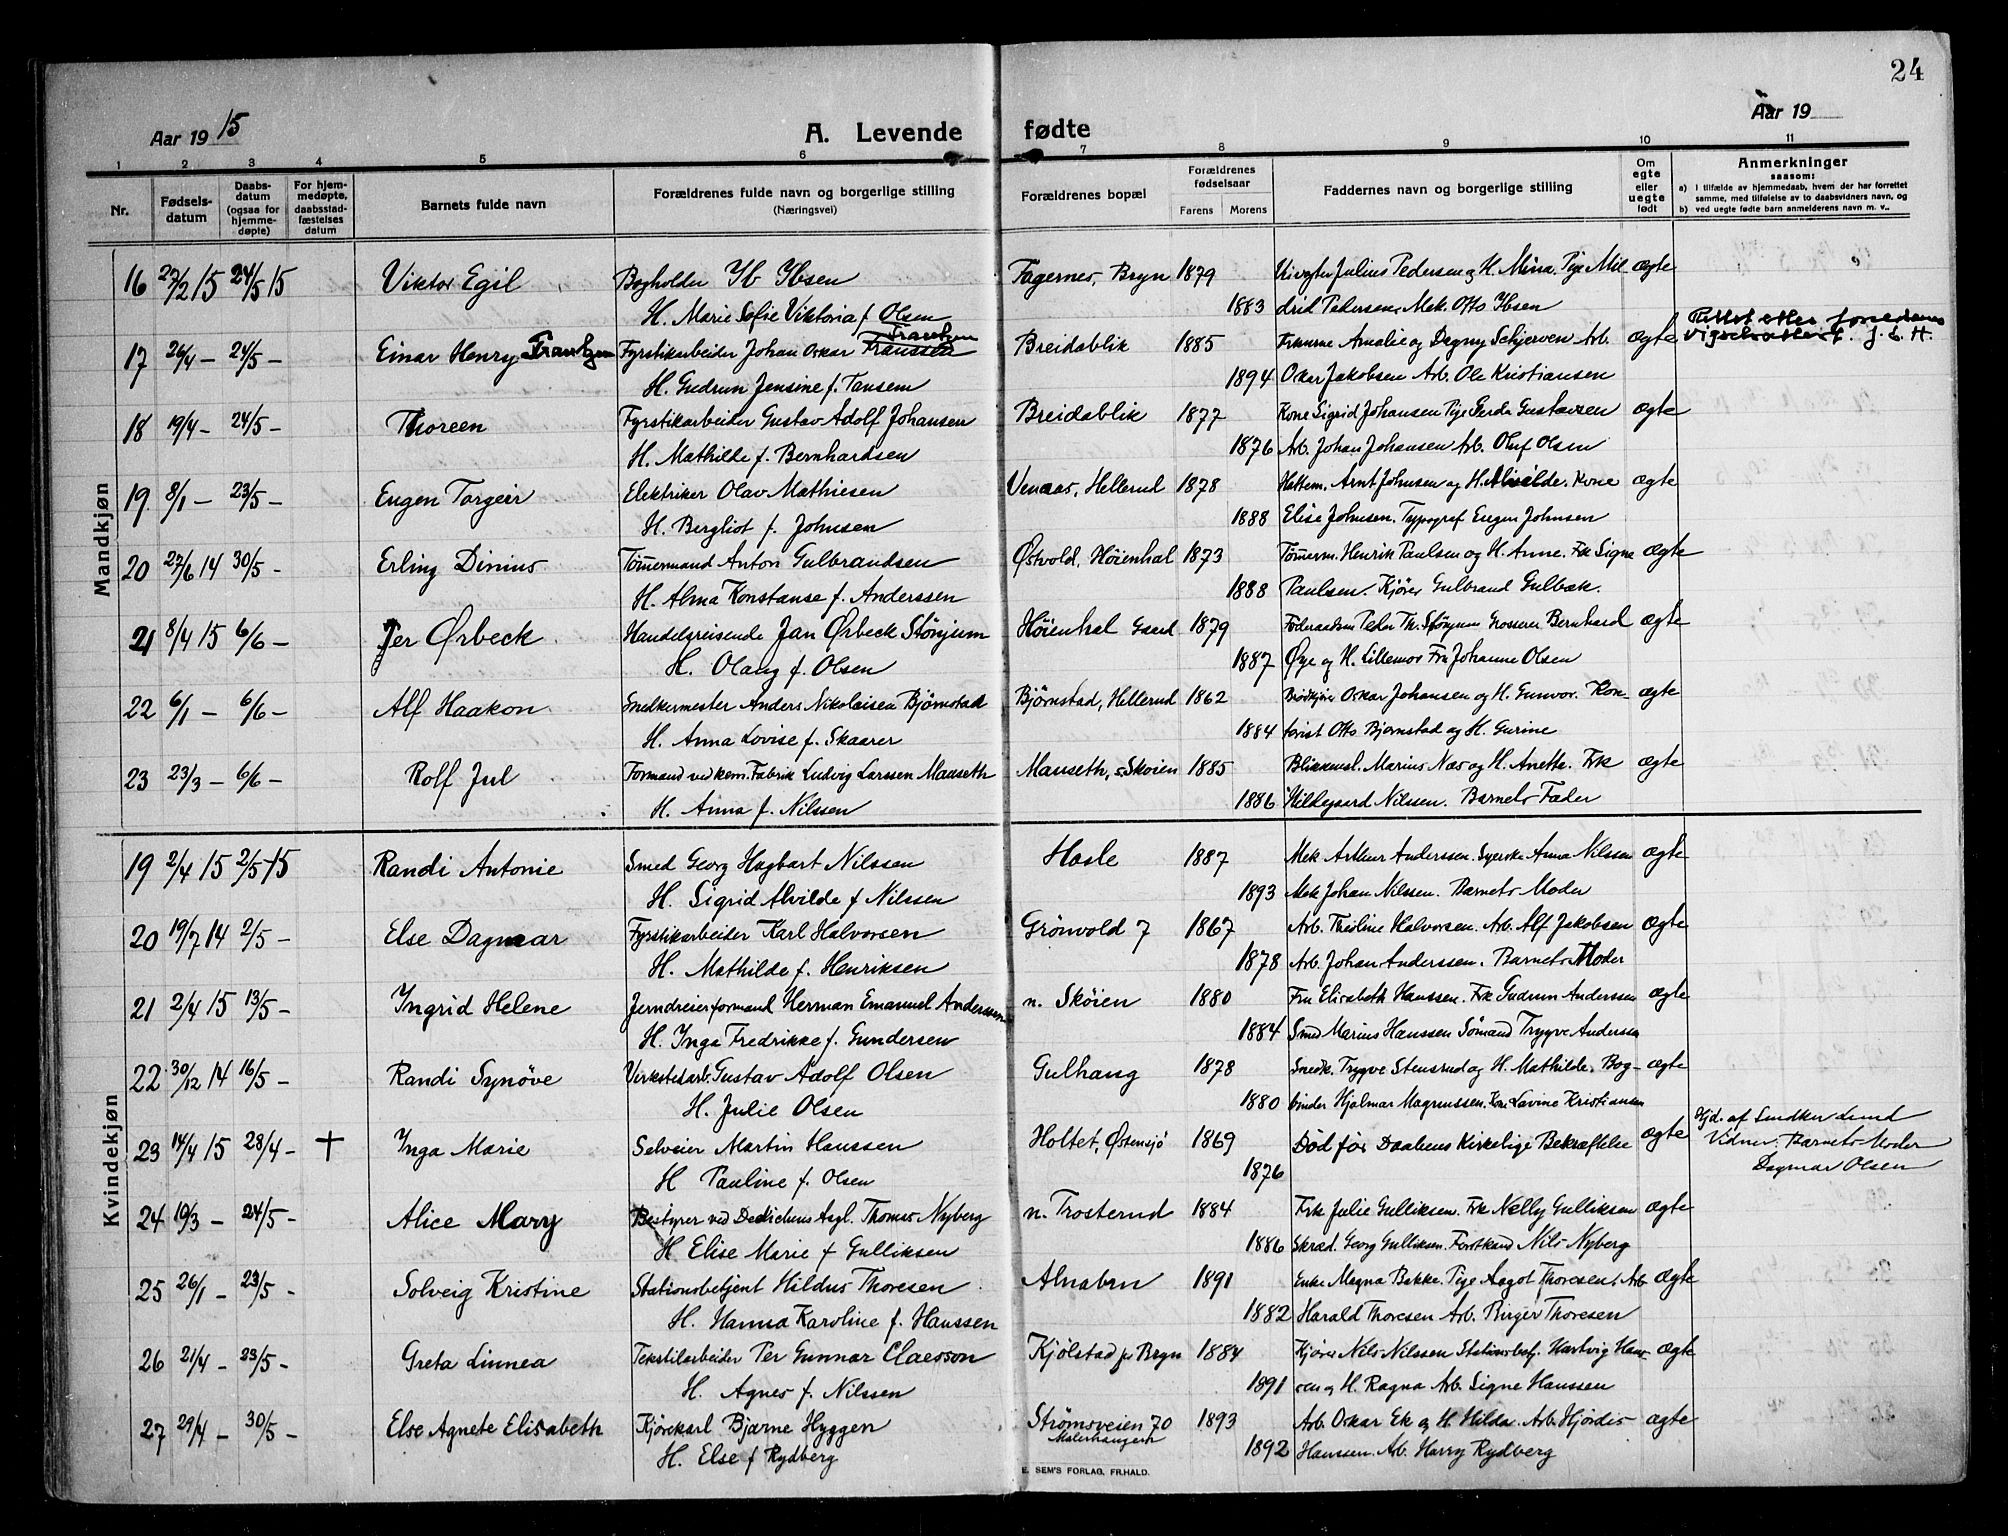 24
Aar 1915 A. Levende fødte Aar 19
1 2 3 4 5 6 7 8 9 10 11
Nr. Fødsels-datum Daabs-datum (ogsaa for hjemme-døpte) For hjem-medøpte, daabsstad-fæstelses datum Barnets fulde navn Forældrenes fulde navn og borgerlige stilling (Næringsvei) Forældrenes bopæl Forældrenes fødselsaar Farens Morens Faddernes navn og borgerlige stilling Om egte eller uegte født Anmerkninger saasom: a) I tilfælde av hjemmedaab, hvem der har forrettet samme, med tilføielse av to daabsvidners navn, og b) ved uegte fødte barn anmelderens navn m. v..
Mandkjøn
16 27/2 15 24/5 15 Viktor Egil Bogholder Ib Ibsen Fagernes, Bryn 1879 Julius Pedersen og H. Mina. Pige Mil ægte
H. Marie Sofie Viktoria f. Olsen 1883 drid Pedersen, Mek. Otto Ibsen
Rettet efter forældrenes
17 26/4 – 24/5 – Einar Henry Frantzen Fyrstikarbeider Johan Oskar Franssen Frantzen Breidablik 1885 Frknerne Amalie og Dagny Schjerven Arb. ægte Vigselsattest. J. E. H.
H. Gudrun Jensine f. Tansem 1894 Oskar Jakobsen Arb. Ole Kristiansen
18 19/4 – 24/5 – Thoreen Fyrstikarbeider Gustav Adolf Johansen Breidablik 1877 Kone Sigrid Johansen Pige Gerda Gustavsen ægte
H. Mathilde f. Bernhardsen 1876 Arb. Johan Johansen Arb. Oluf Olsen
19 8/1 – 23/5 – Eugen Torgeir Elektriker Olav Mathiesen Venaas, Hellerud 1878 Arnt Johnsen og H. Alvilde. Kone ægte
H. Bergliot f. Johnsen 1888 Elise Johnsen. Typograf Eugen Johnsen
20 27/6 14 30/5 – Erling Dinius Tømmermand Anton Gulbrandsen Østvold, Høienhal 1873 Tømmerm. Henrik Paulsen og H. Anne. Frk Signe ægte
H. Alma Konstanse f. Anderssen 1888 Paulsen. Kjører Gulbrand Gulbæk.
21 8/4 15 6/6 – Jer Ørbeck Handelsreisende Jan Ørbeck Stönjum Høienhal Gaard 1879 Peder Th. Stönjum Grosserer Bernhard ægte
H. Olaug f. Olsen 1887 Øye og H. Lillemor Fru Johanne Olsen
22 6/1 – 6/6 – Alf Haakon Snedkermester Anders Nikolaisen Bjørnstad Bjørnstad, Hellerud 1862 Brødkjører Oskar Johansen og H. Gunvor. Kon- ægte
H. Anna Lovise f. Skaarer 1884 torist Otto Bjørnstad og H. Gurine
23 23/3 – 6/6 – Rolf Jul Formand ved kem. Fabrik Ludvig Larssen Manseth Manseth, s. Skøien 1885 Blikkensl. Marius Næs og H. Anette. Frk ægte
H. Anna f. Nilssen 1886 Hildegaard Nilssen. Barnets Fader
Kvindekjøn
19 2/4 15 2/5 15 Randi Antonie Smed Georg Hagbart Nilssen Hasle 1887 Mek Arthur Anderssen. Syerske Anna Nilssen ægte
H. Sigrid Alvilde f Nilssen 1893 Mek Johan Nilssen. Barnets Moder
20 19/7 14 2/5 – Else Dagmar Fyrstikarbeider Karl Halvorsen Grönvold 7 1867 Arb. Thioline Halvorsen. Arb. Alf Jakobsen ægte
H. Mathilde f. Henriksen 1878 Arb. Johan Anderssen. Barnets Moder
21 2/4 15 13/5 – Ingrid Helene Jerndreierformand Herman Emanuel Anderssen n. Skøien 1880 Fru Elisabeth Hanssen. Frk Gudrun Anderssen ægte
H. Inga Fredrikke f. Gundersen 1884 Smed Marius Hanssen Sømand Trygve Andersen
22 30/12 14 16/5 – Randi Synøve Verkstedarb. Gustav Adolf Olsen Gulhaug 1878 Snedk. Trygve Stensrud og H. Mathilde. Bog- ægte
H. Julie Olsen 1880 binder Hjalmar Magnussen. Kone Lovine Kristiansen
23 14/4 15 28/4 – † Inga Marie Selveier Martin Hanssen Holtet, Østensjø 1869 Død før Daabens Kirkelige Bekræftelse ægte Hjd. af Snedker Lund
H Pauline f. Olsen 1876 Vidner: Barnets Moder
Dagmar Olsen
24 19/3 – 24/5 – Alice Mary Bestyrer ved Dedichens Asyl. Thomas Nyberg n. Trosterud 1884 Frk Julie Gulliksen. Frk Nelly Gulliksen ægte
H Elise Marie f Gulliksen 1886 Skræd. Georg Gulliksen. Forstkand Nils Nyberg
25 26/1 – 23/5 – Solveig Kristine Stationsbetjent Hildus Thoresen Alnabru 1891 Enke Magna Bakke. Pige Aagot Thoresen. Arb ægte
H. Hanna Karoline f. Hanssen 1882 Harald Thoresen Arb. Birger Thoresen
26 21/4 – 23/5 – Greta Linnea Tekstilarbeider Per Gunnar Claesson Kjölstad pr Bryn 1884 Kjører Nils Nilssen Stationsbetj. Hartvig Hans- ægte
H. Agnes f. Nilssen 1891 sen og H. Ragna Arb. Signe Hanssen
27 29/4 – 30/5 – Else Agnete Elisabeth Kjørekarl Bjarne Hyggen Strømsveien 70 1893 Arb. Oskar Ek og H Hilda. Arb. Hjørdis ægte
Malerhaugen
H. Else f Rydberg 1892 Hanssen. Arb. Harry Rydberg
E. SEM'S FORLAG, FR.HALD.